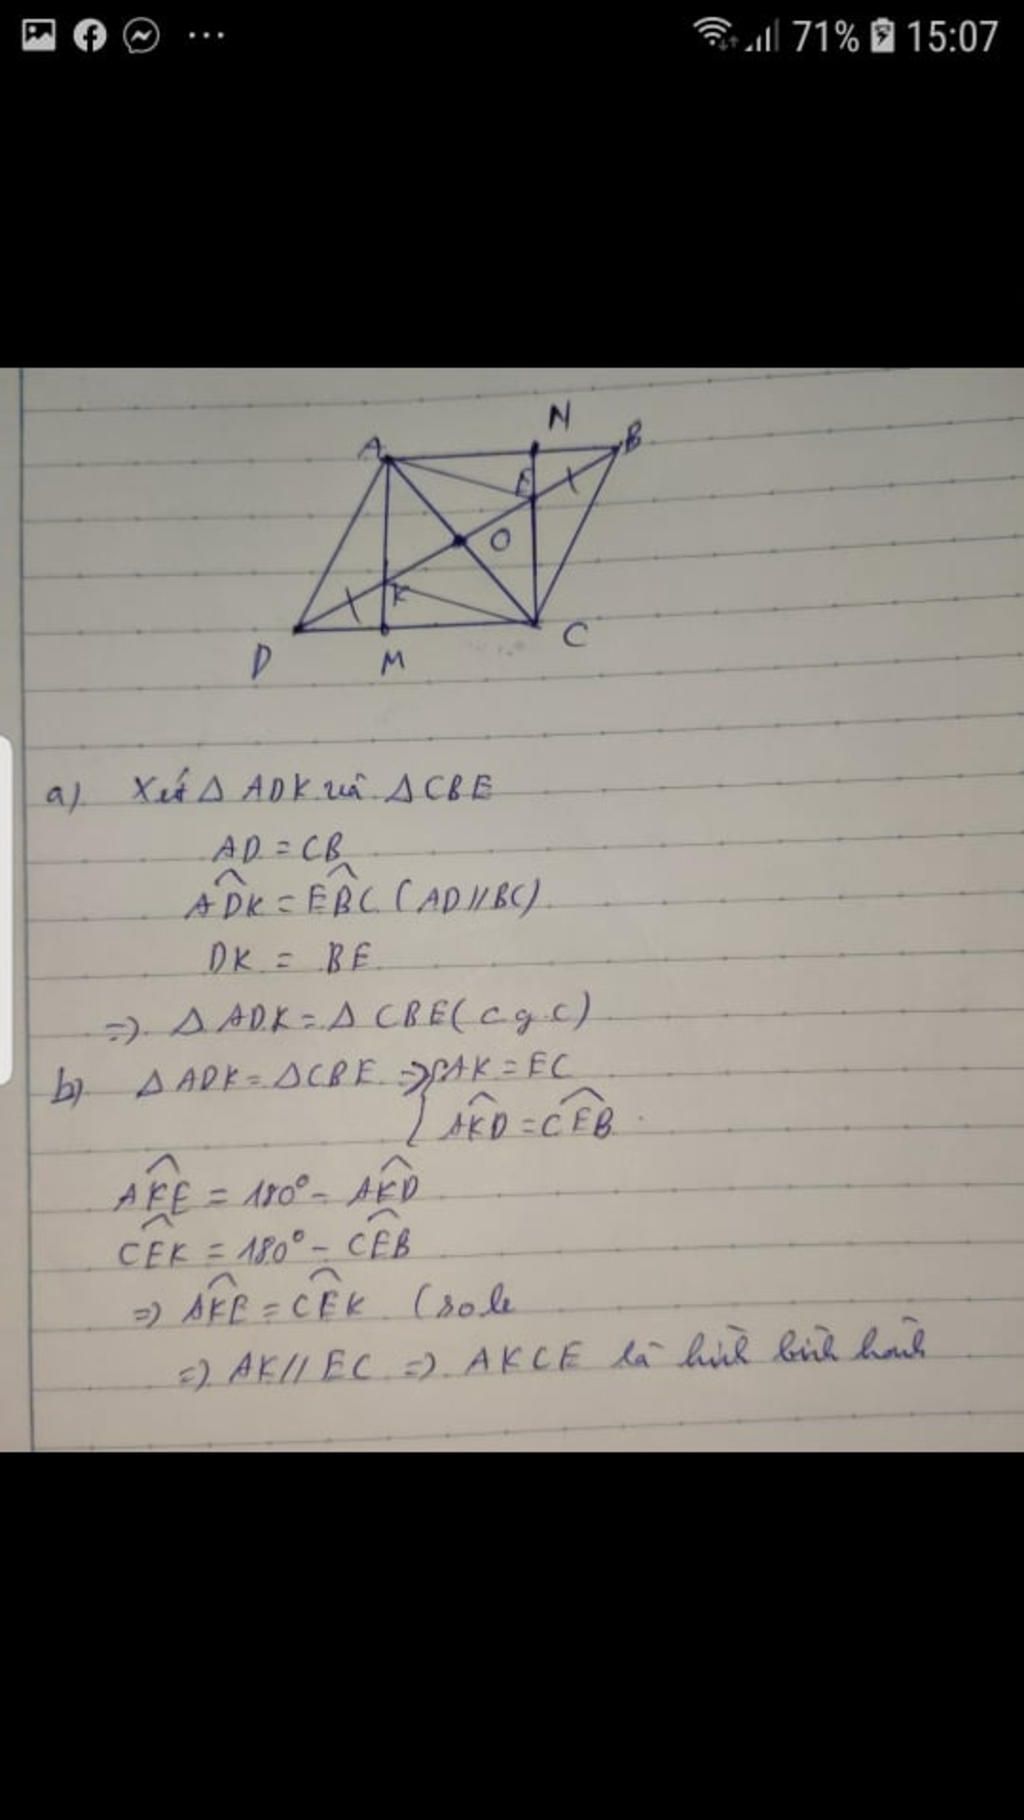 71% 15:07
N
A
B
E
O
K
D
M
C
a) Xét Δ ADK và ΔCBE
AD = CB
ADK = EBC (AD//BC)
DK = BE
=> Δ ADK = Δ CBE (c g c)
b) Δ ADK = ΔCBE => { AK = EC
AKD = CEB
AKE = 180° - AKD
CEK = 180° - CEB
=> AKE = CEK (sole
=> AK// EC => AKCE là hình bình hành